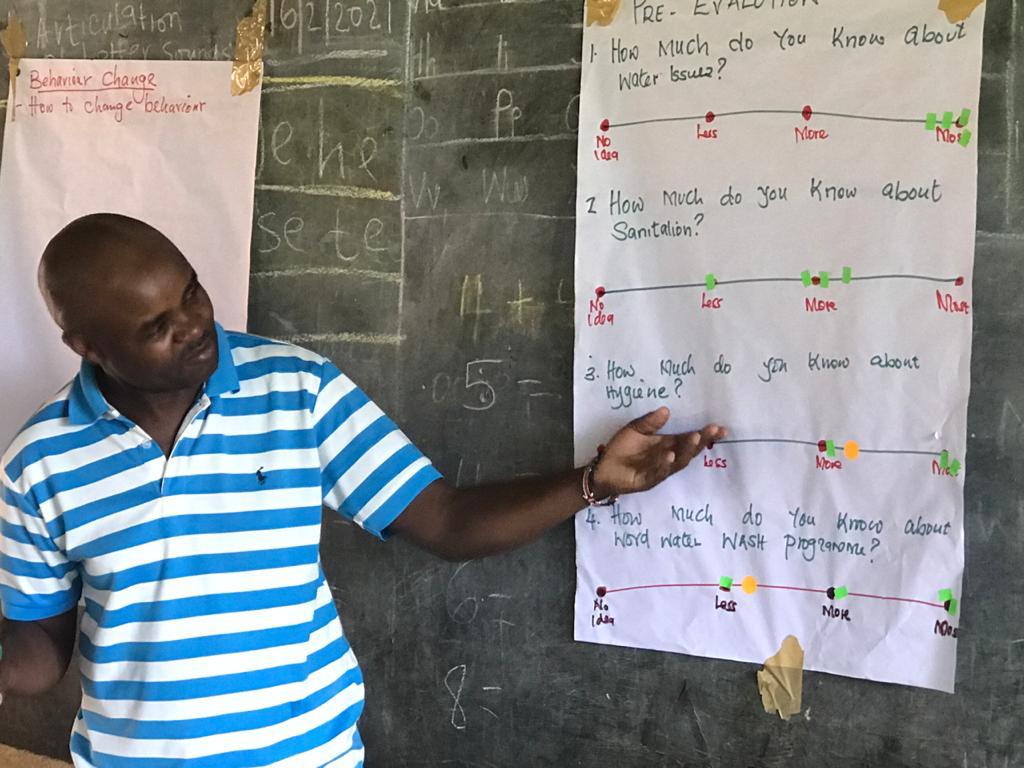 Articulation
letter sounds
6/2/2021
Behaviour Change
- How to change behaviour
he
se te
Pp
Vv Ww
4 +
5 =
6 -
8 -
PRE- EVALUATION
1. How Much do You Know About
Water Issues?
No Less More Most
idea
2 How Much do you Know about
Sanitation?
No Less More Most
idea
3. How Much do you Know about
Hygiene?
Less More
4. How Much do You Know about
Word Water WASH Programme?
No Less More Most
idea